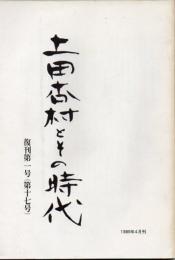 土田杏村とその時代
復刊第一号(第十七号)
1989年4月刊